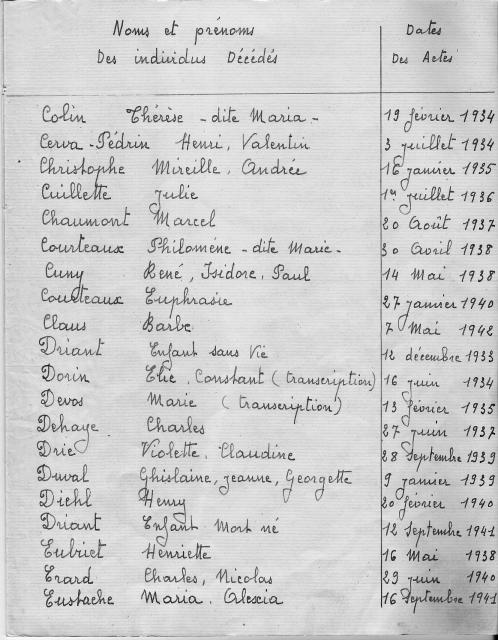 Noms et prénoms Dates
Des individus Décédés Des Actes
Colin Thérèse - dite Maria - 19 février 1934
Cerva-Pédrin Henri, Valentin 3 juillet 1934
Christophe Mireille, Andrée 16 janvier 1935
Cuillette Julie 1er juillet 1936
Chaumont Marcel 20 Août 1937
Courteaux Philomène - dite Marie - 30 Avril 1938
Cuny René, Isidore, Paul 14 Mai 1938
Courteaux Euphrasie 27 janvier 1940
Claus Barbe 7 Mai 1942
Driant Enfant sans Vie 12 décembre 1933
Dorin Elie, Constant (transcription) 16 juin 1934
Devos Marie (transcription) 13 février 1935
Dehaye Charles 27 juin 1937
Drie Violette, Claudine 28 Septembre 1939
Duval Ghislaine, Jeanne, Georgette 9 janvier 1939
Diehl Henry 20 février 1940
Driant Enfant Mort né 12 Septembre 1941
Eubriet Henriette 16 Mai 1938
Erard Charles, Nicolas 29 juin 1940
Eustache Maria, Alexia 16 Septembre 1941